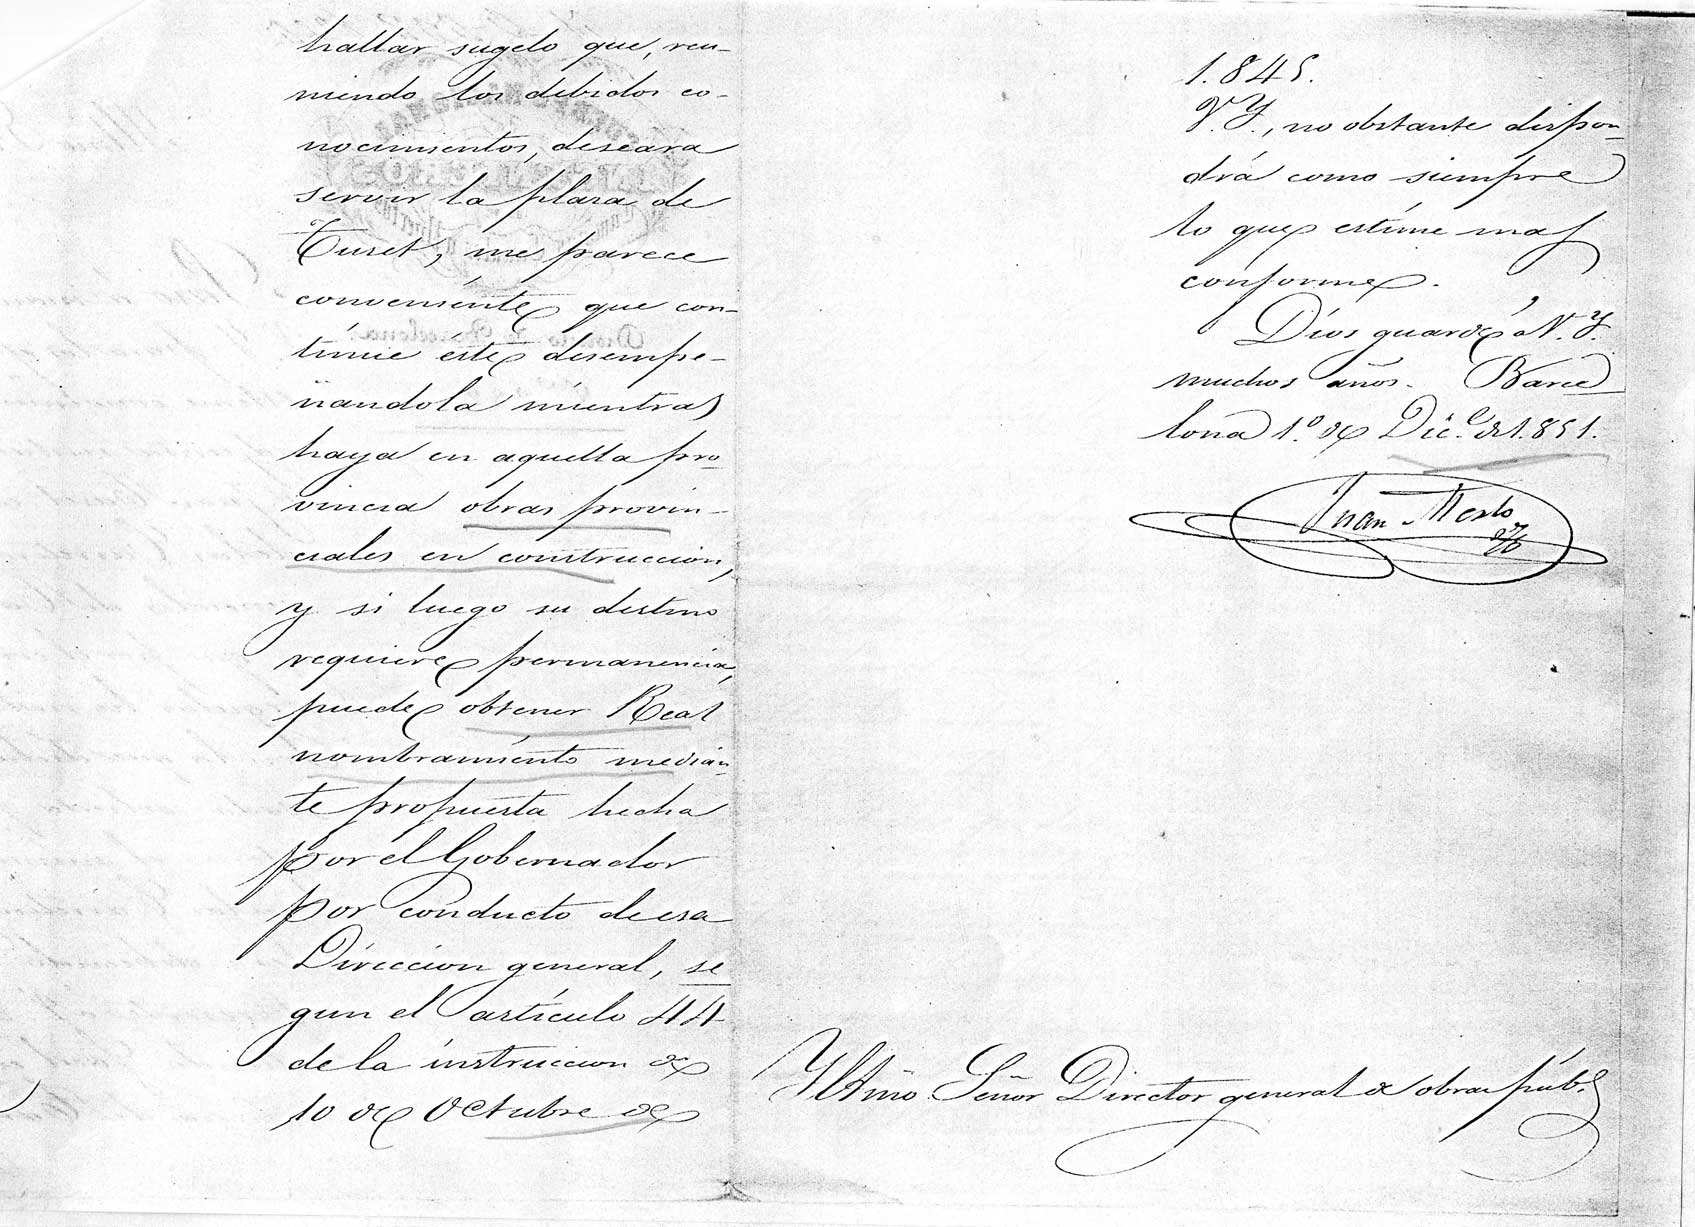 hallar sugeto que, reu-
niendo los debidos co-
nocimientos, deseara
servir la plaza de
Turet, me parece
conveniente que con-
tinúe este desempe-
ñandola mientras
haya en aquella pro-
vincia obras provin-
ciales en construccion,
y si luego su destino
requiere permanencia,
puede obtener Real
nombramiento median-
te propuesta hecha
por el Gobernador
por conducto de esa
Direccion general, se
gun el artículo 44
de la instruccion de
10 de Octubre de
1.845.
V. Y., no obstante dispon-
drá como siempre
lo que estime mas
conforme.
Dios guarde á V. Y.
muchos años. Barce
lona 1.º de Dic.e de 1.851.
Juan Merlo
Yltmo. Señor Director general de obras púb.s